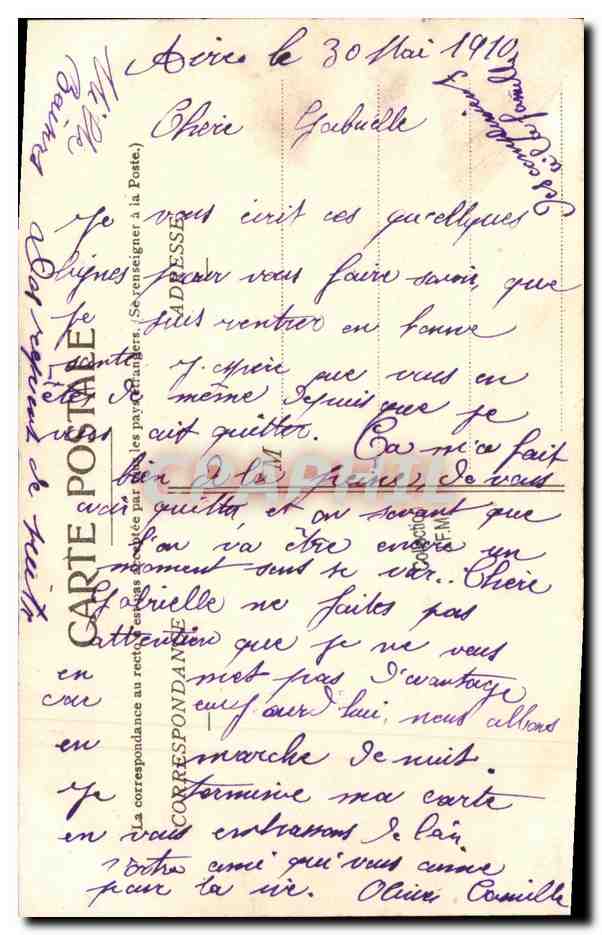 Aire le 30 Mai 1910
Chère Gabrielle
Je vous écrit ces quellques
lignes pour vous faire savoir, que
je suis rentrer en bonne
santé j'espère que vous en
êtes de même depuis que je
vous ait quitter. Ça m'a fait
bien de la peine, de vous
avoir quitter et en savant que
l'on va être encore un
moment sens se voir.. Chère
Gabrielle ne faites pas
attention que je ne vous
en met pas d'avantage
car aujourd'hui, nous allons
en marche de nuit.
Je termine ma carte
en vous embrassons de loin
votre ami qui vous aime
pour la vie. Olivier Camille
Des compliments
à la famille
Mille
Baisers
de suite
CARTE POSTALE
(La correspondance au recto n'est pas acceptée par tous les pays étrangers. (Se renseigner à la Poste.)
CORRESPONDANCE
ADRESSE
M
Collection
F.M.
CPAPHIL